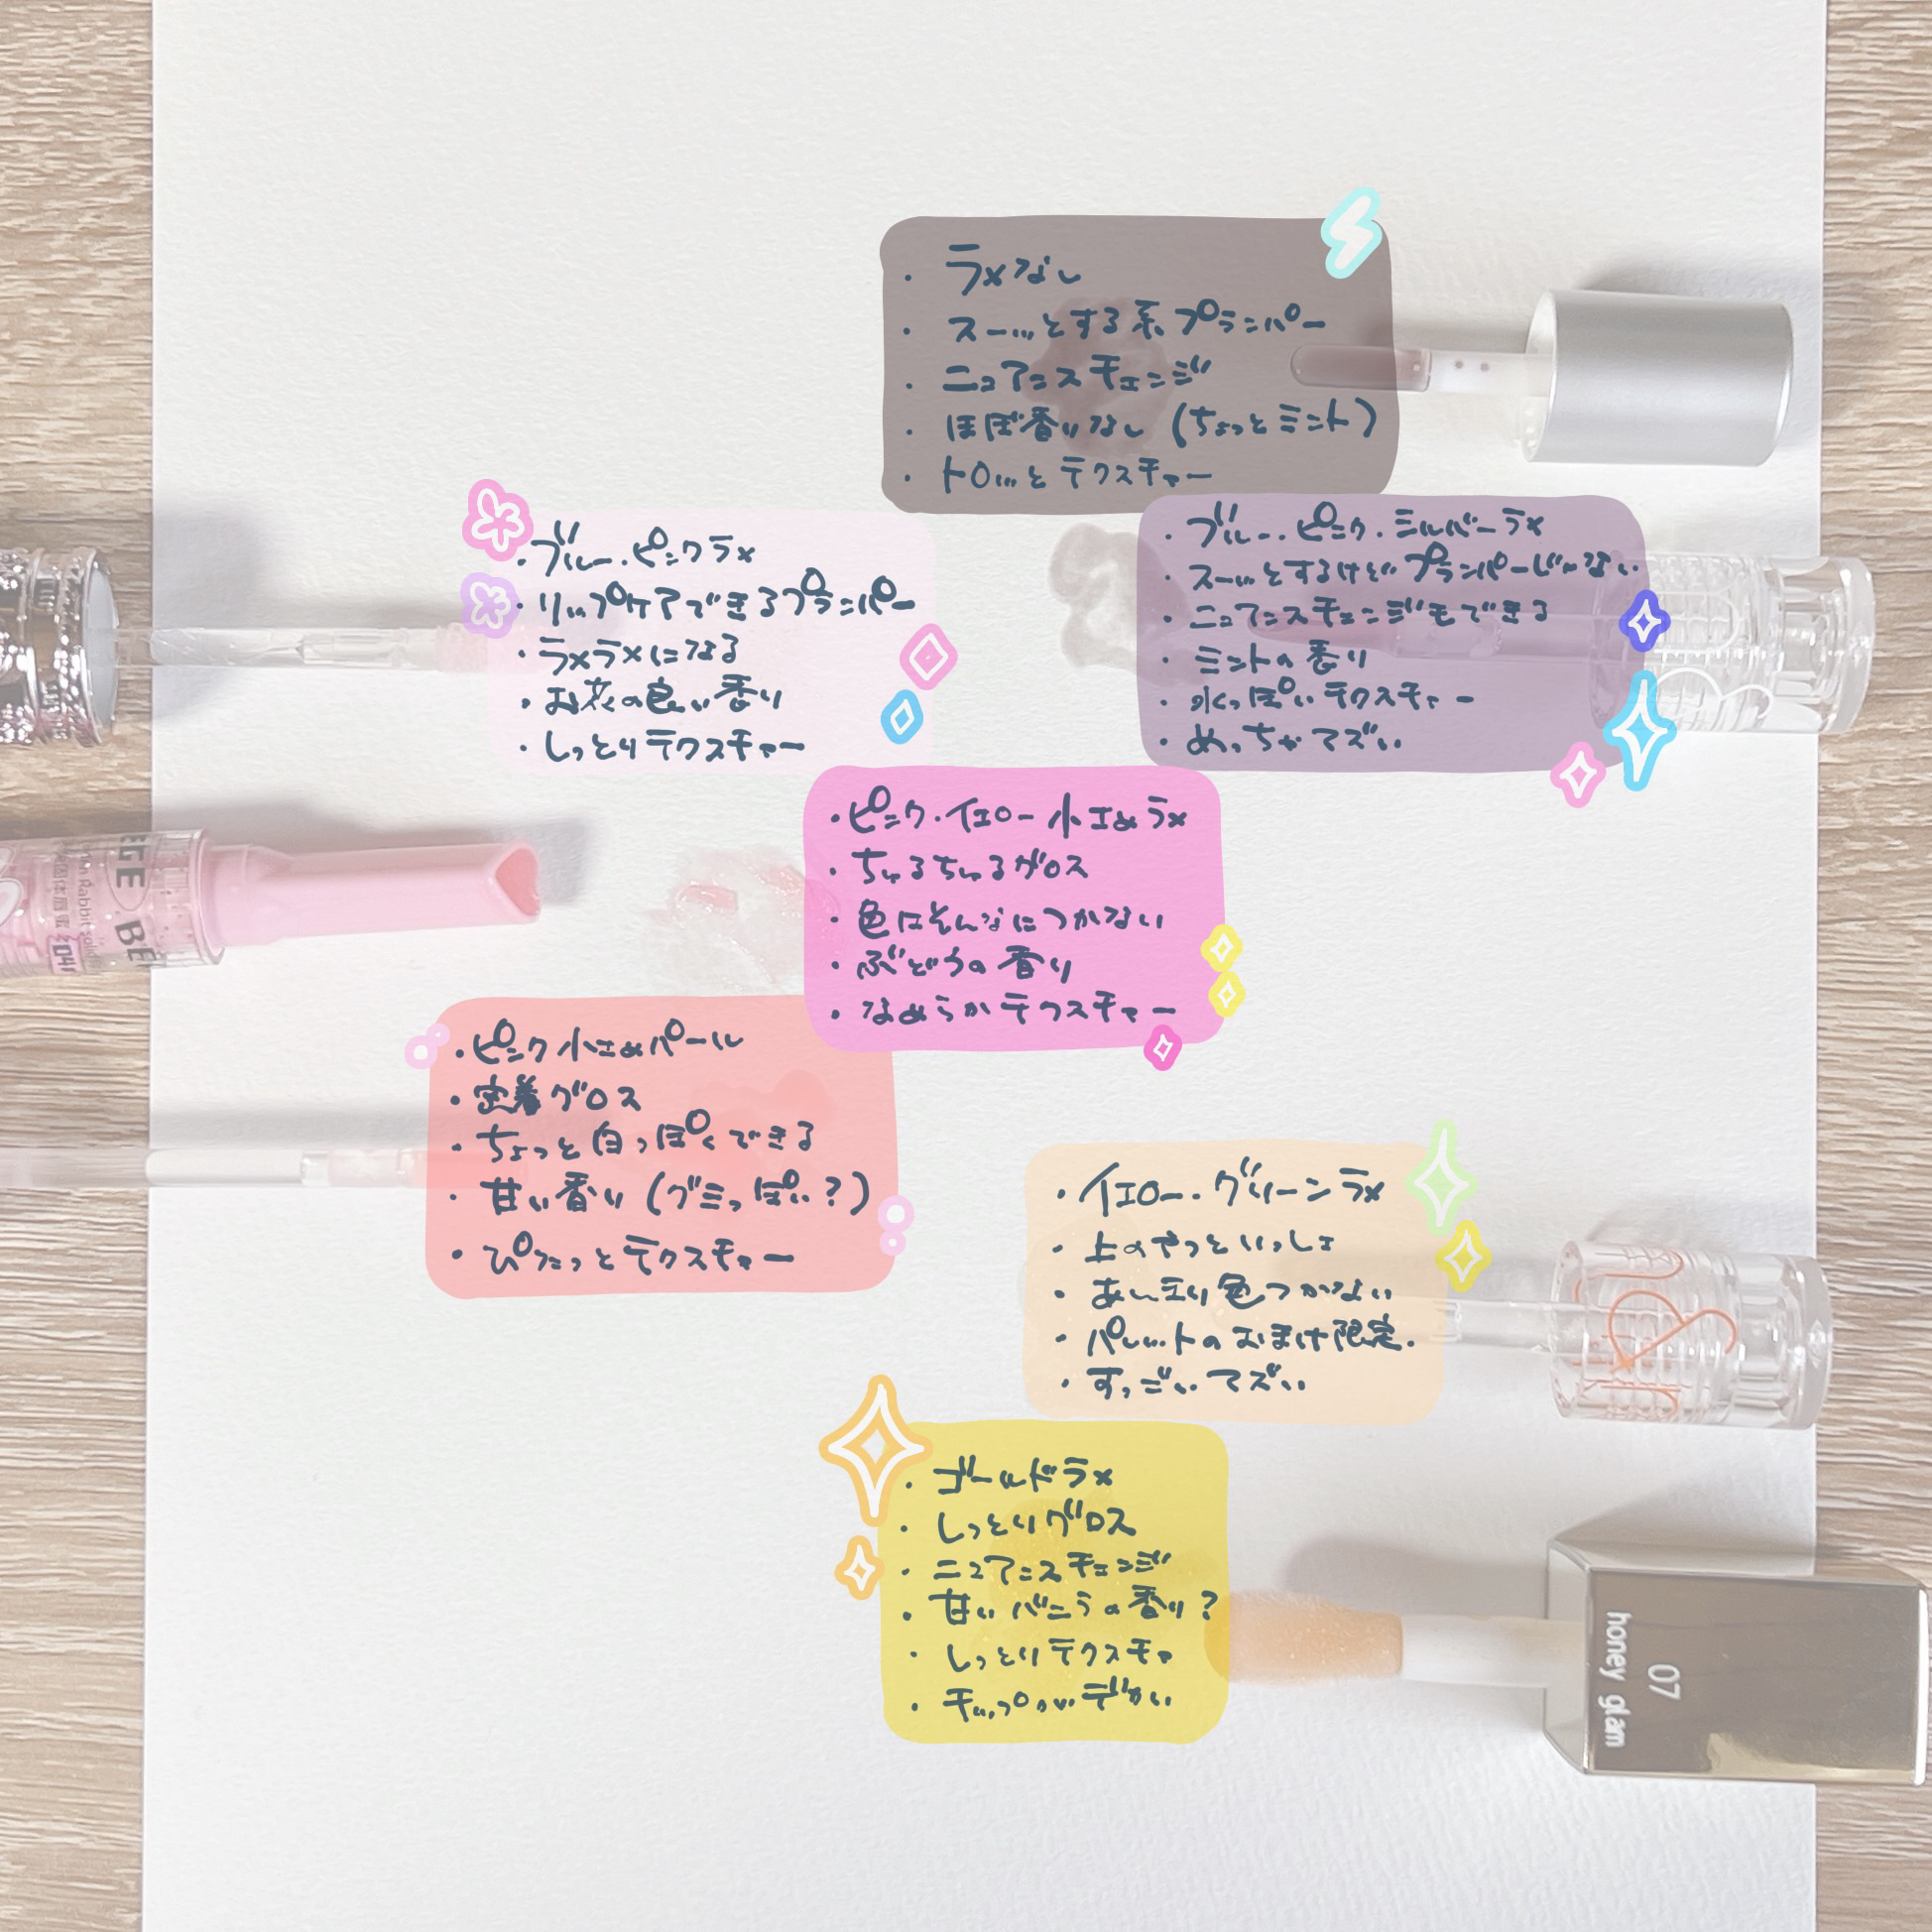 ・ラメなし
・スーッとする系プランパー
・ニュアンスチェンジ
・ほぼ香りなし（ちょっとミント）
・トロッとテクスチャー
・ブルー・ピンクラメ
・リップケアできるプランパー
・ラメラメになる
・お花の良い香り
・しっとりテクスチャー
・ブルー・ピンク・シルバーラメ
・スーッとするけどプランパーじゃない
・ニュアンスチェンジもできる
・ミントの香り
・水っぽいテクスチャー
・めっちゃマズい
・ピンク・イエロー小さめラメ
・ちゅるちゅるグロス
・色はそんなにつかない
・ぶどうの香り
・なめらかテクスチャー
・ピンク小さめパール
・密着グロス
・ちょっと白っぽくできる
・甘い香り（グミっぽい？）
・ぴたっとテクスチャー
・イエロー・グリーンラメ
・上のやつといっしょ
・あんまり色つかない
・パレットのおまけ限定.
・すっごいマズい
・ゴールドラメ
・しっとりグロス
・ニュアンスチェンジ
・甘いバニラの香り？
・しっとりテクスチャ
・チップがデカい
07
honey glam